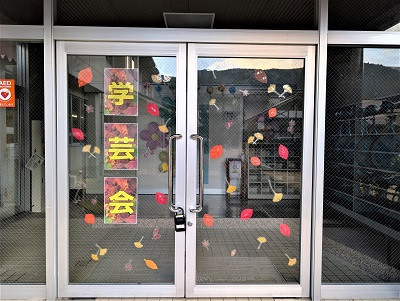 AED
学
芸
会